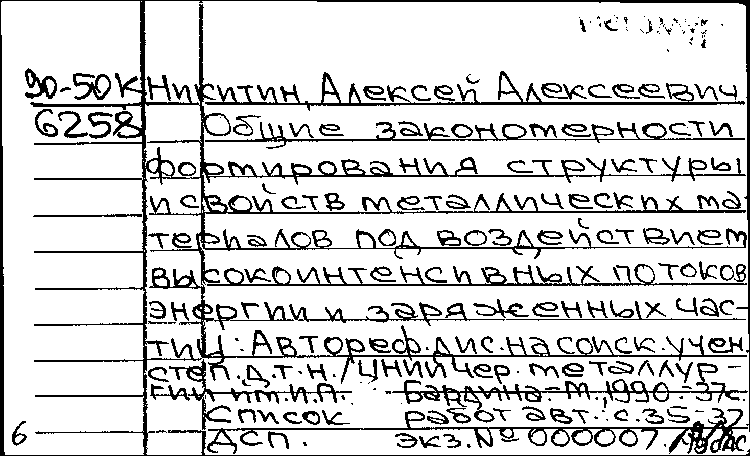 90-50К Никитин, Алексей Алексеевич
6258 Общие закономерности
формирования структуры
и свойств металлических ма-
териалов под воздействием
высокоинтенсивных потоков
энергии и заряженных час-
тиц: Автореф. дис. на соиск. учен.
степ. д.т.н. / ЦНИИчер. металлур-
гии им. И.П. Бардина.-М., 1990.-37с.
Список работ авт.: с.35-37
6 ДСП. экз. № 000007.